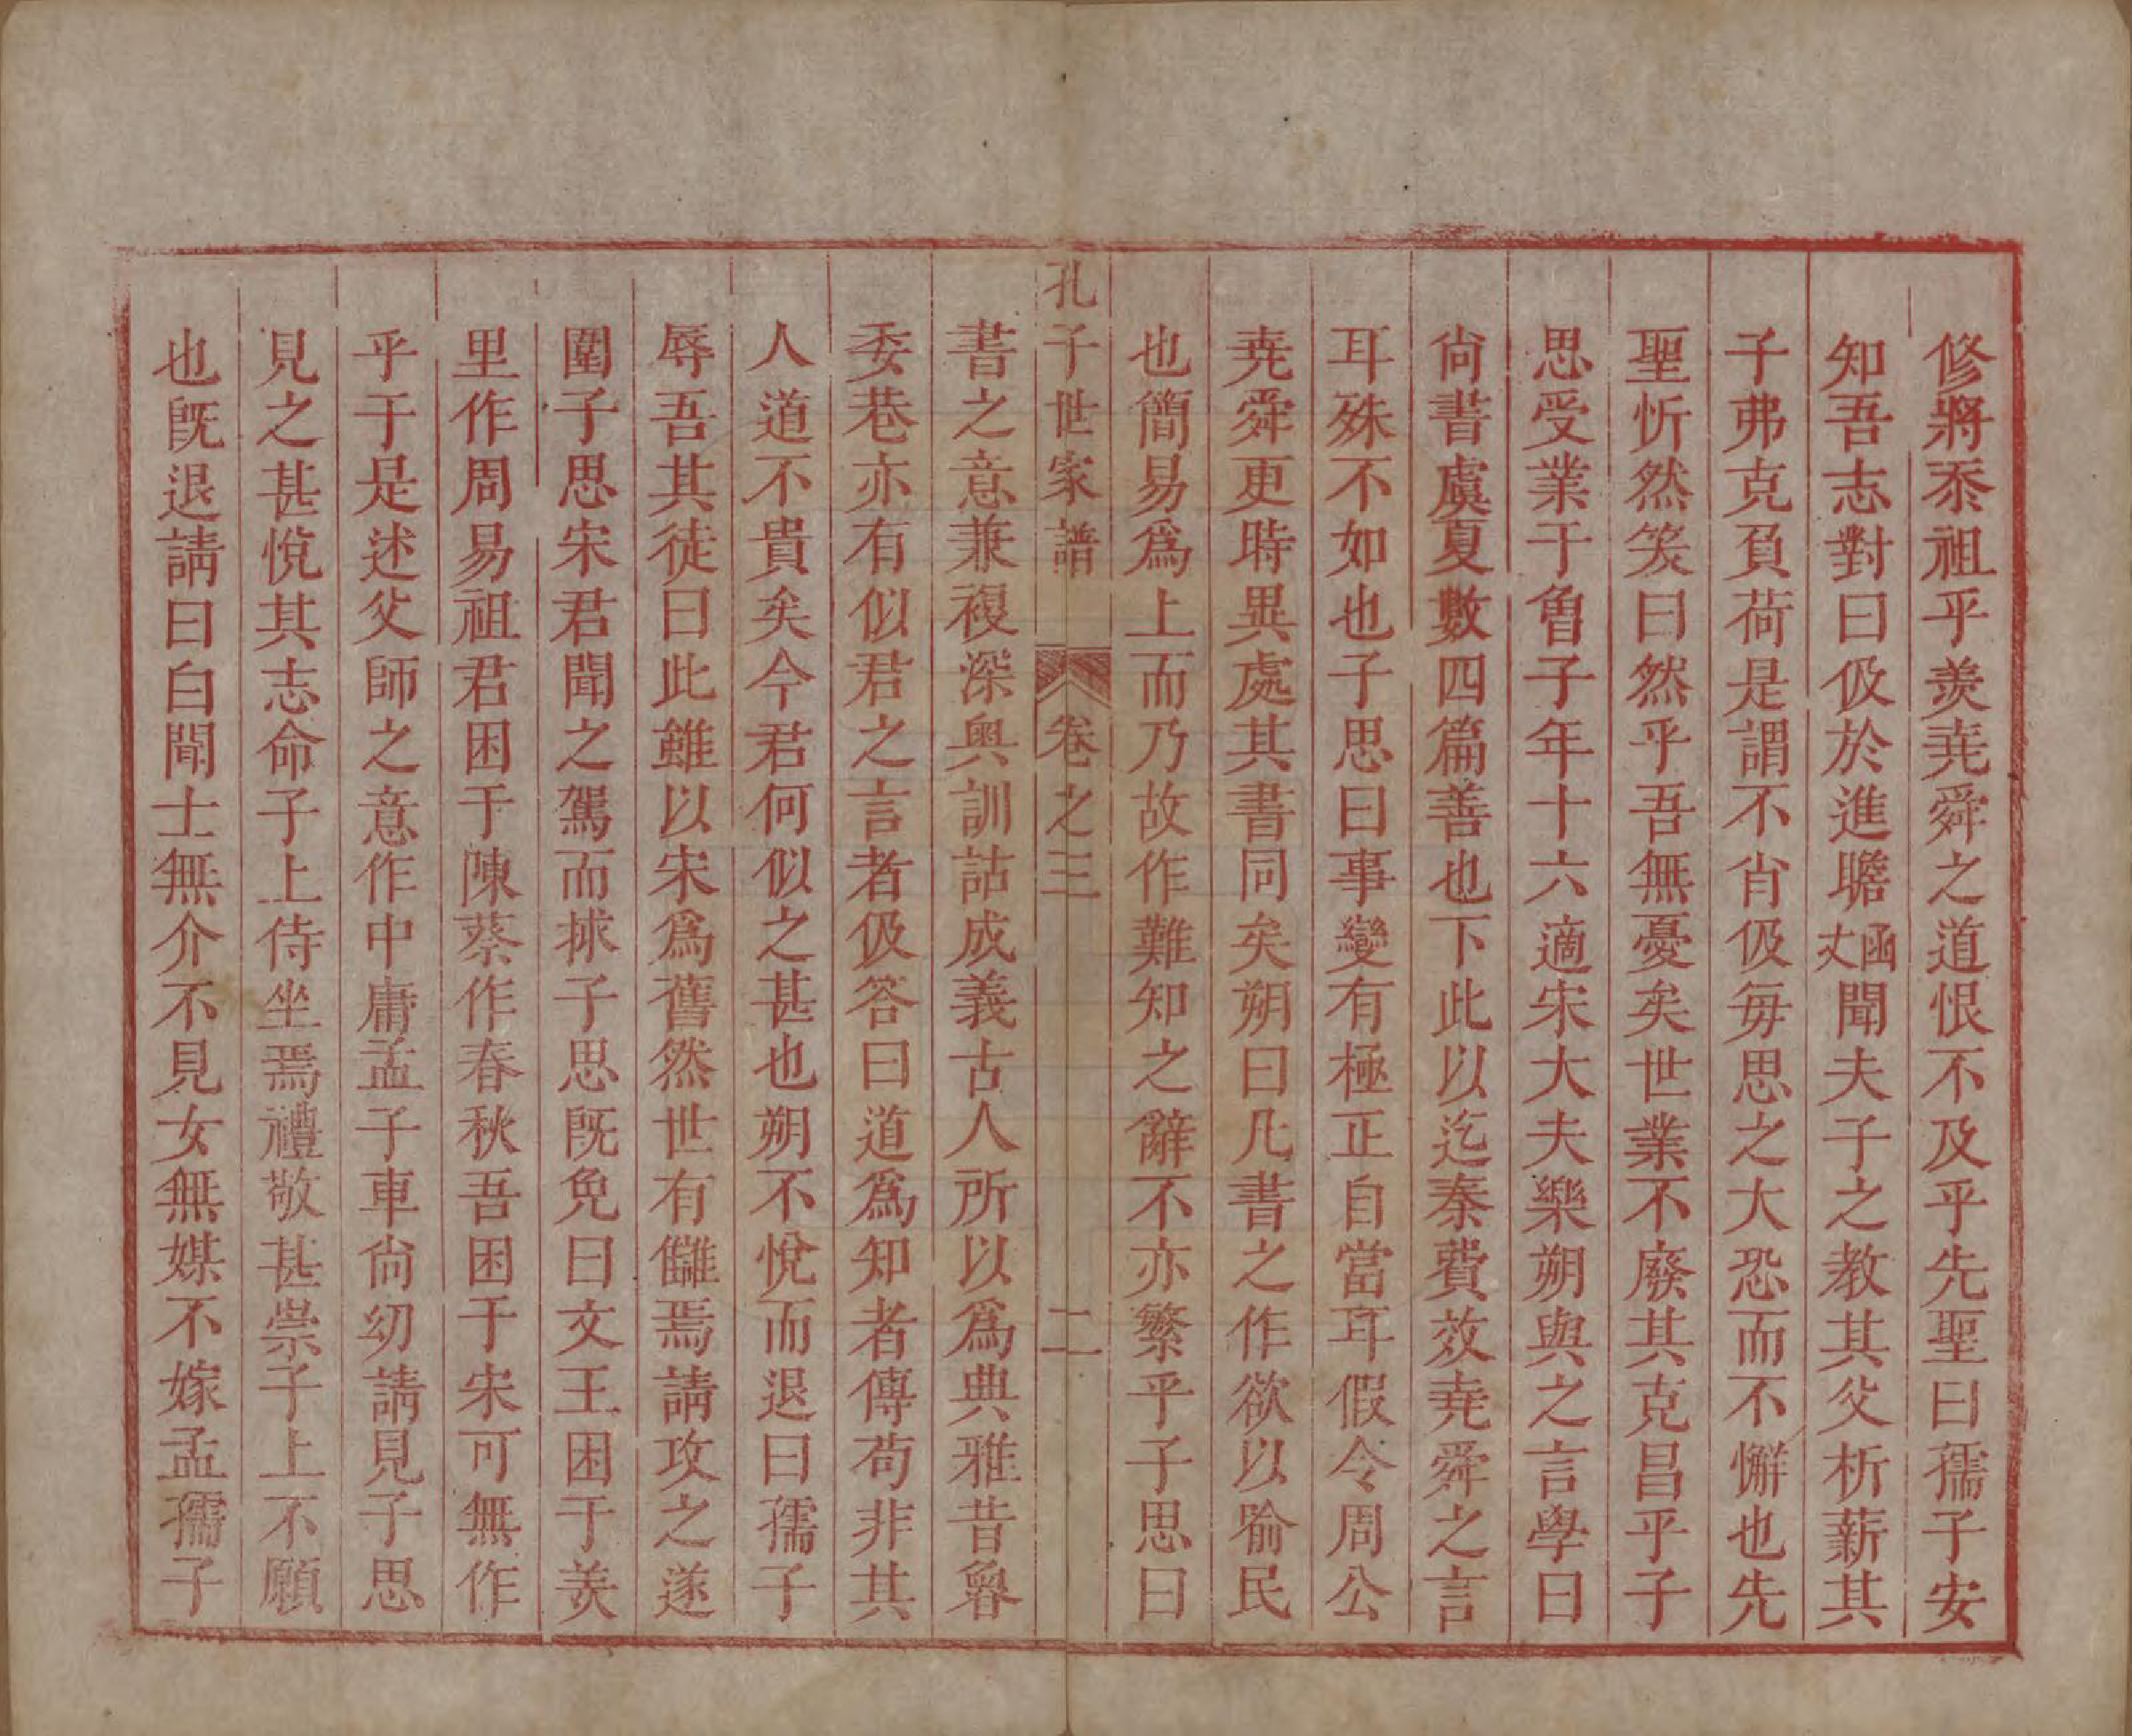 修將忝祖乎羨堯舜之道恨不及乎先聖曰孺子安
知吾志對曰伋於進瞻函丈聞夫子之教其父析薪其
子弗克負荷是謂不肖伋每思之大恐而不懈也先
聖忻然笑曰然乎吾無憂矣世業不廢其克昌乎子
思受業于魯子年十六適宋大夫樂朔與之言學曰
尚書虞夏數四篇善也下此以迄秦費效堯舜之言
耳殊不如也子思曰事變有極正自當耳假令周公
堯舜更時異處其書同矣朔曰凡書之作欲以喻民
也簡易爲上而乃故作難知之辭不亦繁乎子思曰
孔子世家譜 卷之三 二
書之意兼複深奧訓詁成義古人所以爲典雅昔魯
委巷亦有似君之言者伋答曰道爲知者傳苟非其
人道不貴矣今君何似之甚也朔不悅而退曰孺子
辱吾其徒曰此雖以宋爲舊然世有讎焉請攻之遂
圍子思宋君聞之駕而捄子思既免曰文王困于羑
里作周易祖君困于陳蔡作春秋吾困于宋可無作
乎于是述父師之意作中庸孟子車尚幼請見子思
見之甚悅其志命子上侍坐焉禮敬甚崇子上不願
也旣退請曰白聞士無介不見女無媒不嫁孟孺子